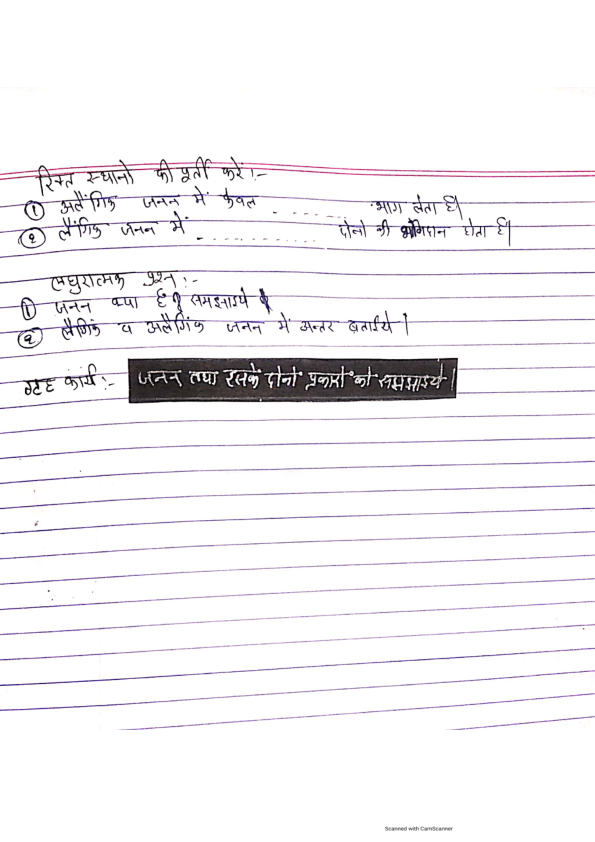 रिक्त स्थानो की पूर्ती करें।-
① अलैंगिक जनन में केवल - - - - - - - - भाग लेता है।
② लैंगिक जनन में - - - - - - - - दोनो की भागिदान होता है।
लघुरात्मक प्रश्न :-
① जनन क्या है? समझाइये
② लैगिंक व अलैगिंक जनन में अन्तर बताईये।
गृह कार्य :- जनन तथा इसके दोनो प्रकारो को समझाइये।
Scanned with CamScanner